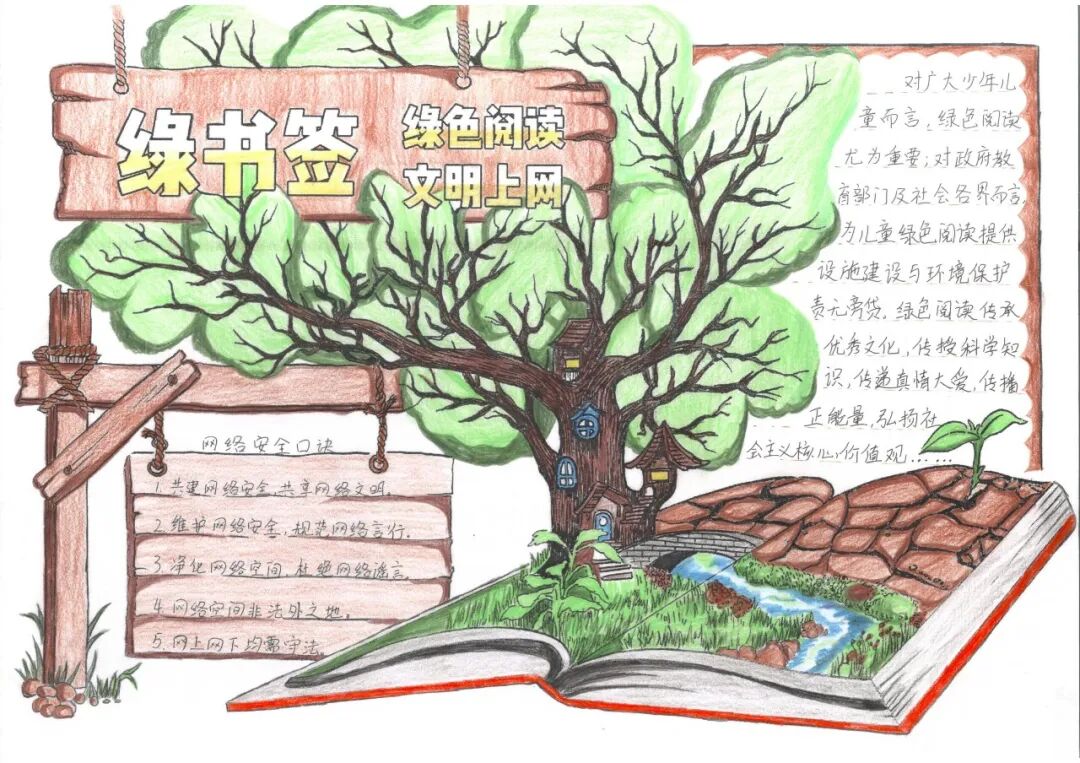 绿书签
绿色阅读
文明上网
对广大少年儿
童而言,绿色阅读
尤为重要;对政府教
育部门及社会各界而言,
为儿童绿色阅读提供
设施建设与环境保护
责无旁贷。绿色阅读传承
优秀文化,传授科学知
识,传递真情大爱,传播
正能量,弘扬社
会主义核心价值观……
网络安全口诀
1.共建网络安全,共享网络文明。
2.维护网络安全,规范网络言行。
3.净化网络空间,杜绝网络谣言。
4.网络空间非法外之地。
5.网上网下均需守法。